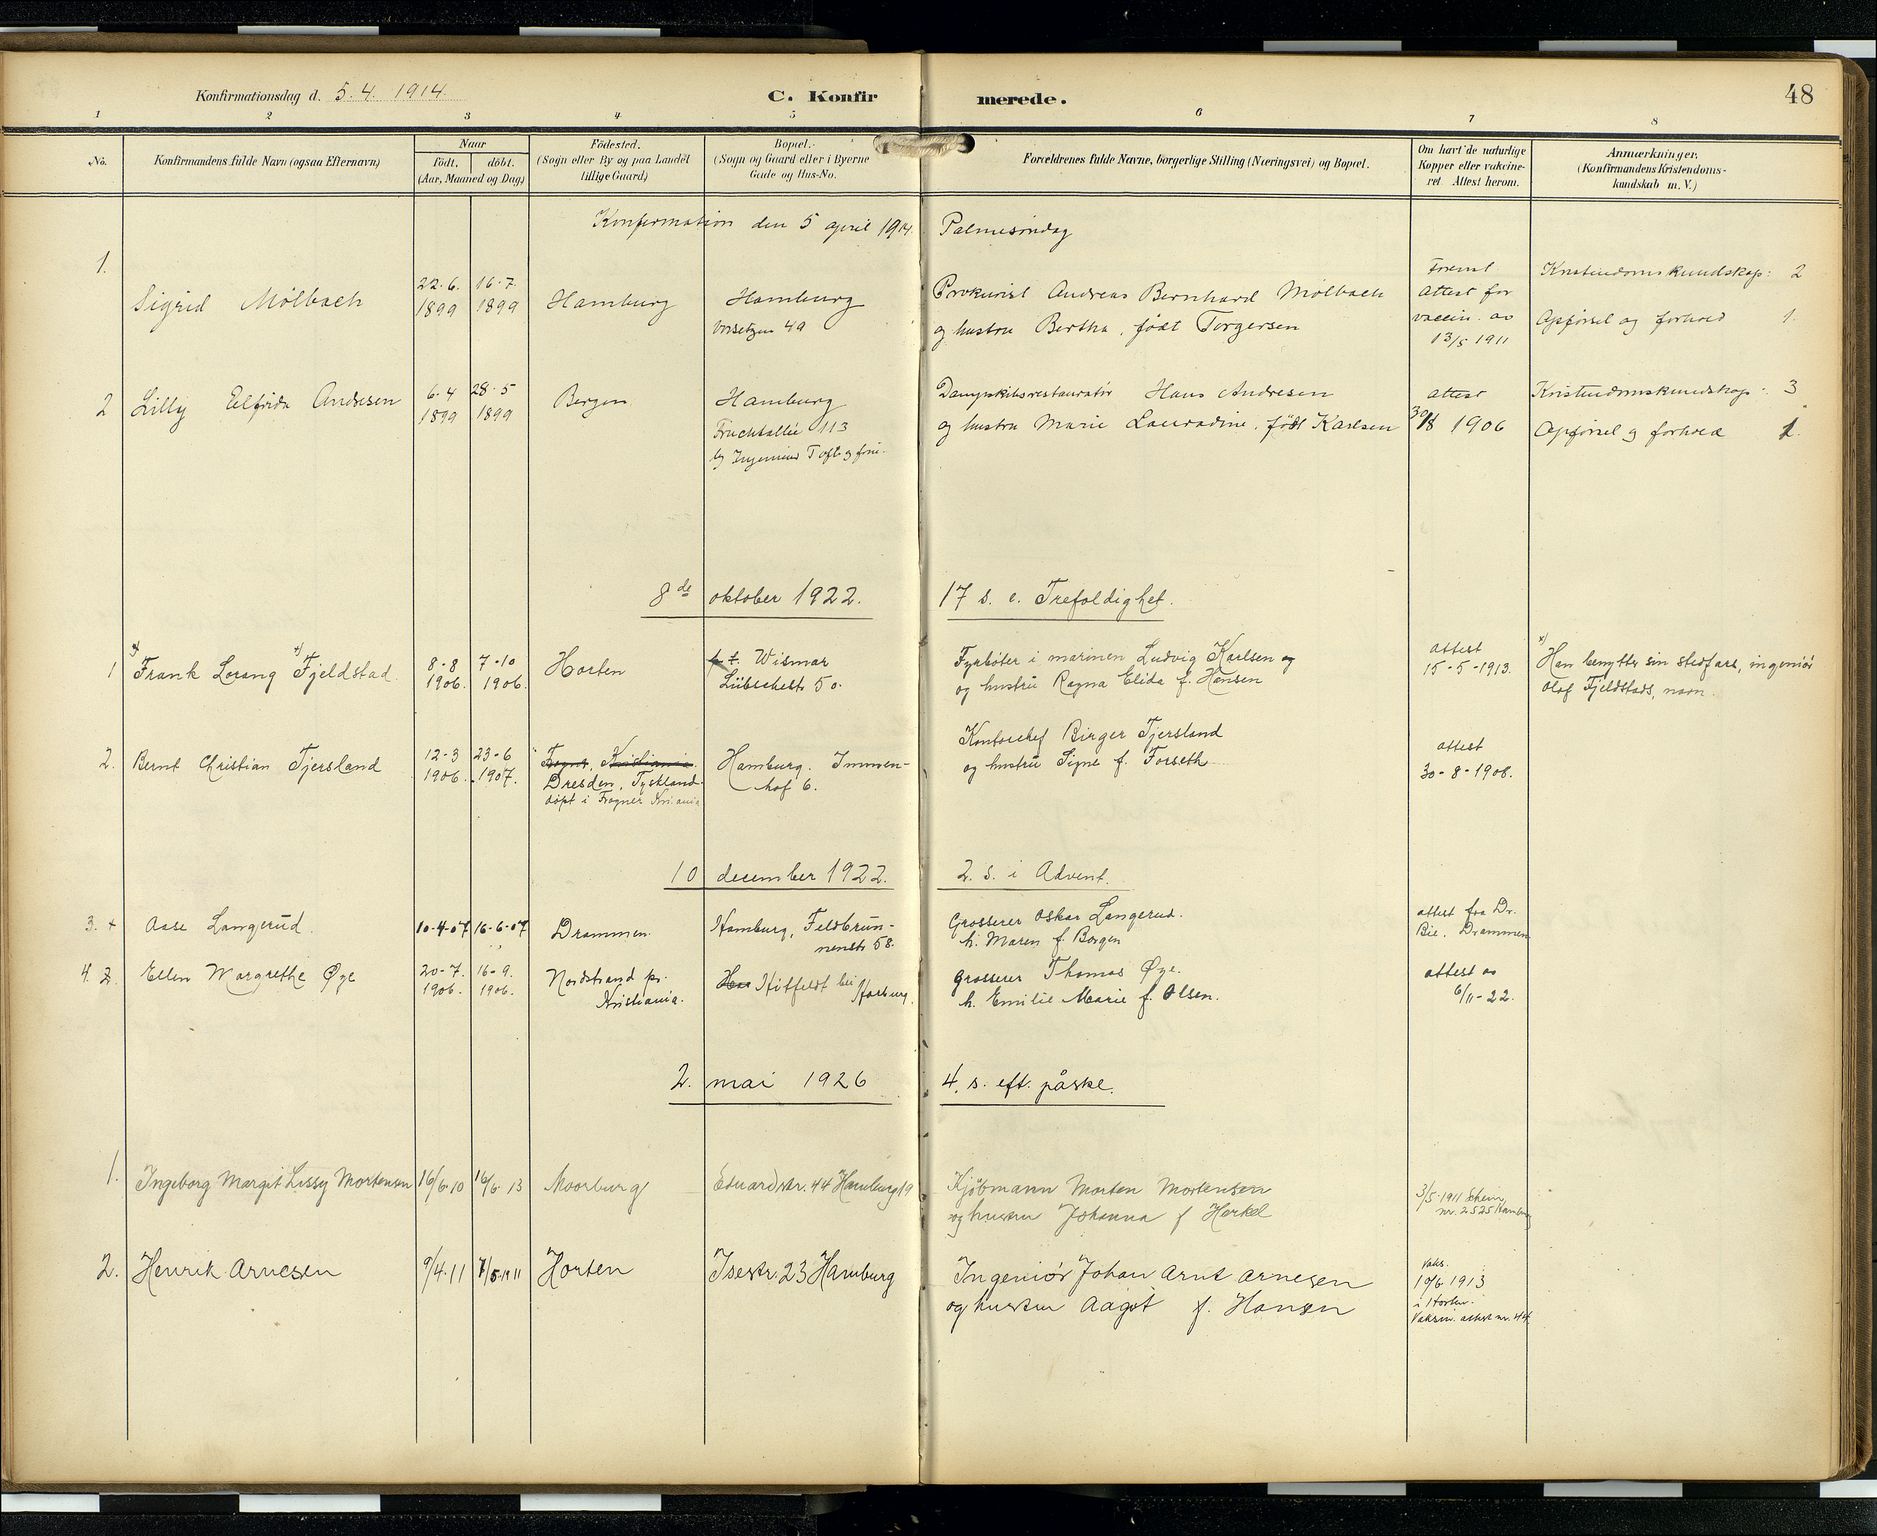 Konfirmationsdag d. 5. 4. 1914.
C. Konfirmerede.
48
1 2 3 4 5 6 7 8
No.
Konfirmandens fulde Navn (ogsaa Efternavn)
Naar
födt. döbt.
(Aar, Maaned og Dag)
Födested.
(Sogn eller By og paa Landet
tillige Gaard)
Bopæl.
(Sogn og Gaard eller i Byerne
Gade og Hus-No.
Forældrenes fulde Navne, borgerlige Stilling (Næringsvei) og Bopæl.
Om havt de naturlige
Kopper eller vakcine-
ret. Attest herom.
Anmærkninger.
(Konfirmandens Kristendoms-
kundskab m. V.)
Konfirmation den 5 april 1914. Palmesöndag
1.
Sigrid Mølbach
22. 6.
1899
16. 7.
1899
Hamburg
Hamburg
Vorsetzen 49
Prokurist Andreas Bernhard Mølbach
og hustru Bertha, født Torgersen
Forevist
attest for
vaccin. av
13/5 1911
Kristendomskundskap: 2
Opførsel og forhold 1.
2 Lilly Elfrida Andresen
6. 4
1899
28. 5
1899
Bergen
Hamburg
Fruchtallée 113
Dampskibsrestauratør Hans Andresen
og hustru Marie Lauradine, født Karlsen
attest
30/8 1906
Kristendomskundskap 3
Opførsel og forhold 1.
8de oktober 1922. 17 s. e. Trefoldighet.
1 x) Frank Lorang x) Fjeldstad.
8-8
1906.
7-10
1906.
Horten
p. t. Wismar
Lübschestr 50.
Fyrböter i marinen Ludvig Karlsen og
og hustru Ragna Elida f. Hansen
attest
15-5-1913.
x) Han benytter sin stedfars, ingeniör
Olaf Fjeldstads, navn.
2. Bernt Christian Tjersland
12-3
1906.
23-6
1907.
Fogner, Kristiania.
Dresden, Tyskland
döpt i Frogner Kristiania
Hamburg. Immen-
hof 6.
Kontorchef Birger Tjersland
og hustru Signe f. Forseth
attest
30-8-1908.
10 december 1922. 2. s. i Advent.
3. + Aase Langerud.
10-4-07 16-6-07
Drammen.
Hamburg, Feldbrun-
nenstr 58.
Grosserer Oskar Langerud.
h. Maren f. Borgen
attest fra Dr.
Bie, Drammen
4. 2. Ellen Margrethe Øye
20-7.
1906.
16-9.
1906.
Nordstrand pr.
Kristiania.
Har Hitfeldt bei Harburg.
Grosserer Thomas Øye.
h. Emilie Marie f. Olsen.
attest av
6/11-22.
2. mai 1926 4. s. eft. påske.
1. Ingeborg Margit Lissy Mortensen
16/6 10 16/6 13
Moorburg
Eduardstr. 44 Hamburg 19
Kjøbmann Morten Mortensen
og hustru Johanna f Herkel
3/5 1911 Schein
nr. 2525 Hamburg
2. Henrik Arnesen
9/4. 11 7/5 1911
Horten
Isestr. 23 Hamburg
Ingeniør Johan Arnt Arnesen
og hustru Aagot f. Hansen
Vaks.
10/6 1913
i Horten.
Vaksin. attest nr. 44